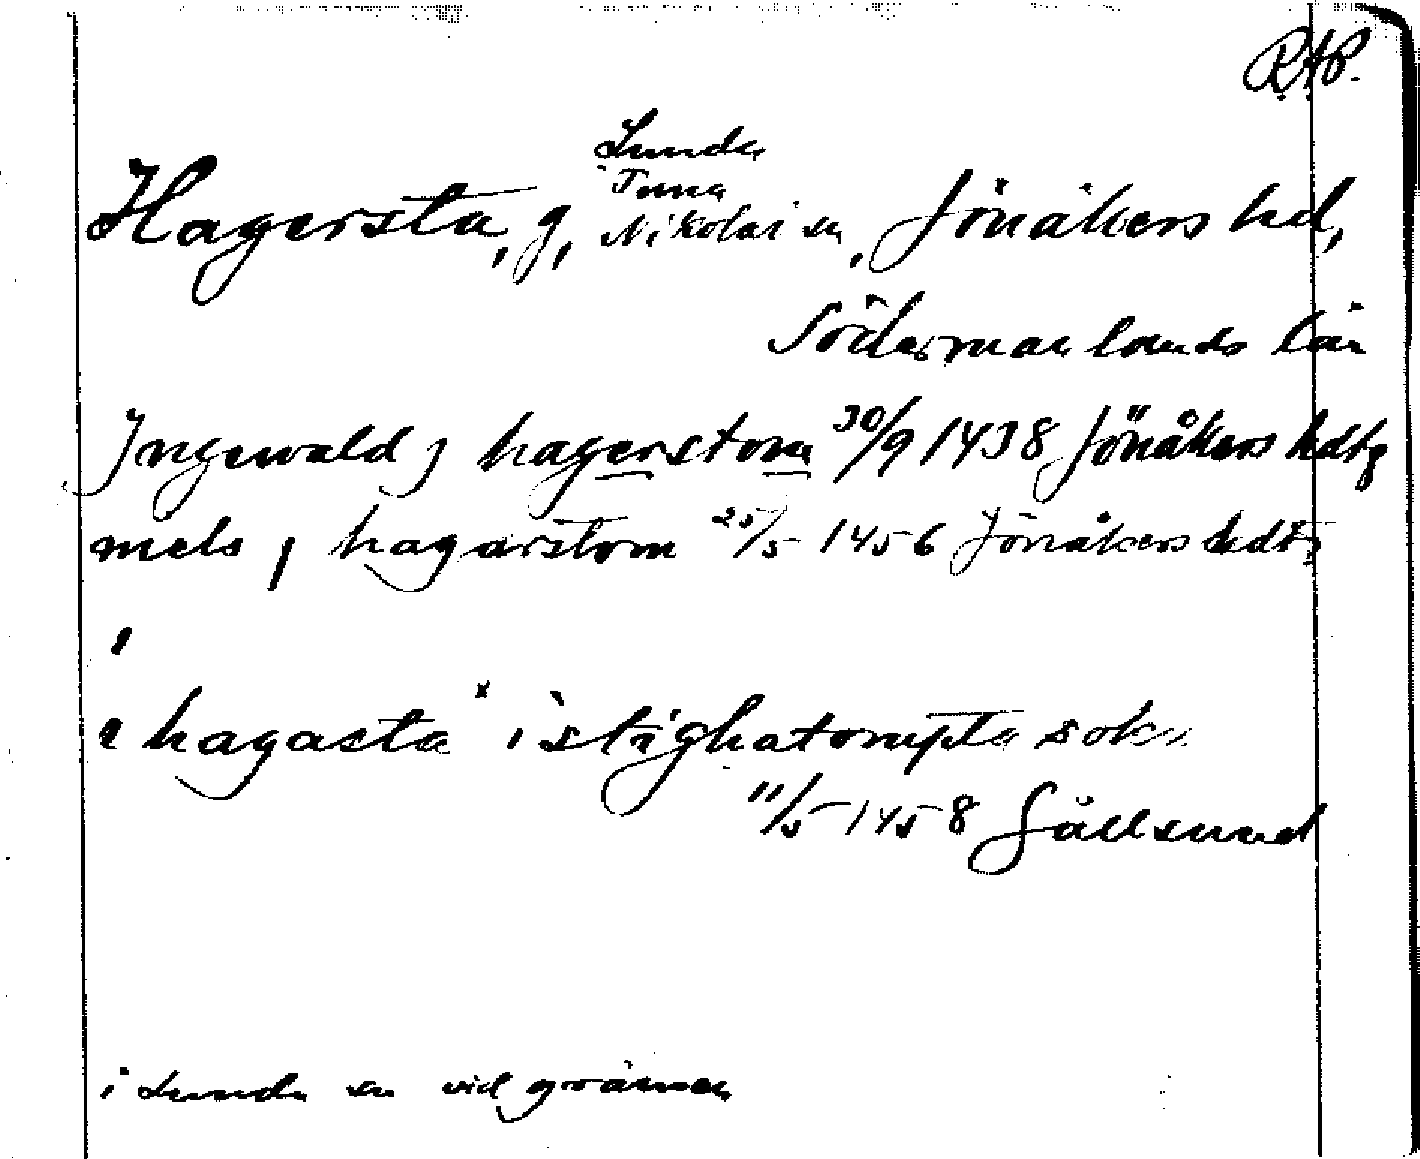 RAP.
Lunda
Tuna
Hagersta, g, Nikolai sn, Jönåkers hd,
Södermanlands län
Ingewald j hagerstom 30/9 1438 Jönåkers hdtg
mels j hagarstom 25/5 1456 Jönåkers hdtg
i hagasta x i stighatompta sokn
11/5 1458 Gällsund
i Lunda sn vid gränsen